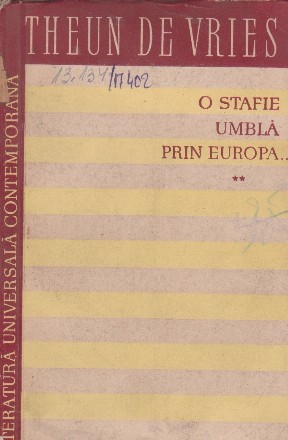 THEUN DE VRIES
13.134/17402
O STAFIE
UMBLĂ
PRIN EUROPA..
**
TERATURĂ UNIVERSALĂ CONTEMPORANĂ